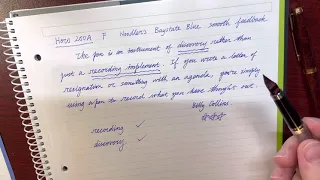 Hero 200A F Noodler's Baystate Blue smooth feedback
The pen is an instrument of discovery rather than
just a recording implement. If you wrote a letter of
resignation or something with an agenda, you're simply
using a pen to record what you have thought out.
Billy Collins
recording ✓
discovery ✓